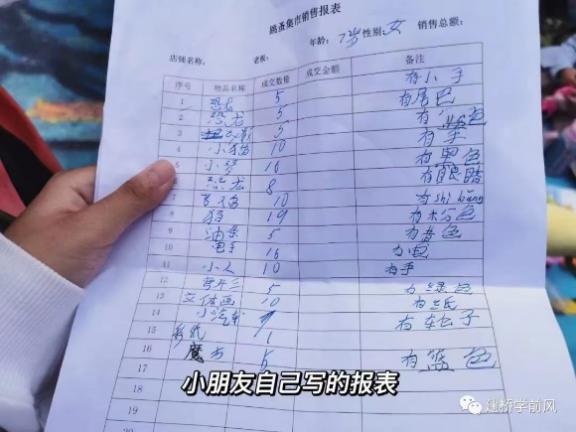 跳蚤集市销售报表
店铺名称: 老板: 年龄: 7岁 性别: 女 销售总额:
序号 物品名称 成交数量 成交金额 备注
1 恐龙 5 有小手
2 恐龙 5 有尾巴
3 5 色
4 小猫 10 有
5 小琴 16 有黑色
6 恐龙 8 有眼睛
7 10 为shi bǎng
8 狗 19 有粉色
9 油条 5 为黄色
10 电手 16 为电
11 小人 10 有手
12 5 为绿色
13 立体画 10 为纸
14 小汽车 有车仑子
15 彩纸 1
16 魔方 有蓝色
17
18
19
小朋友自己写的报表
建桥学前风